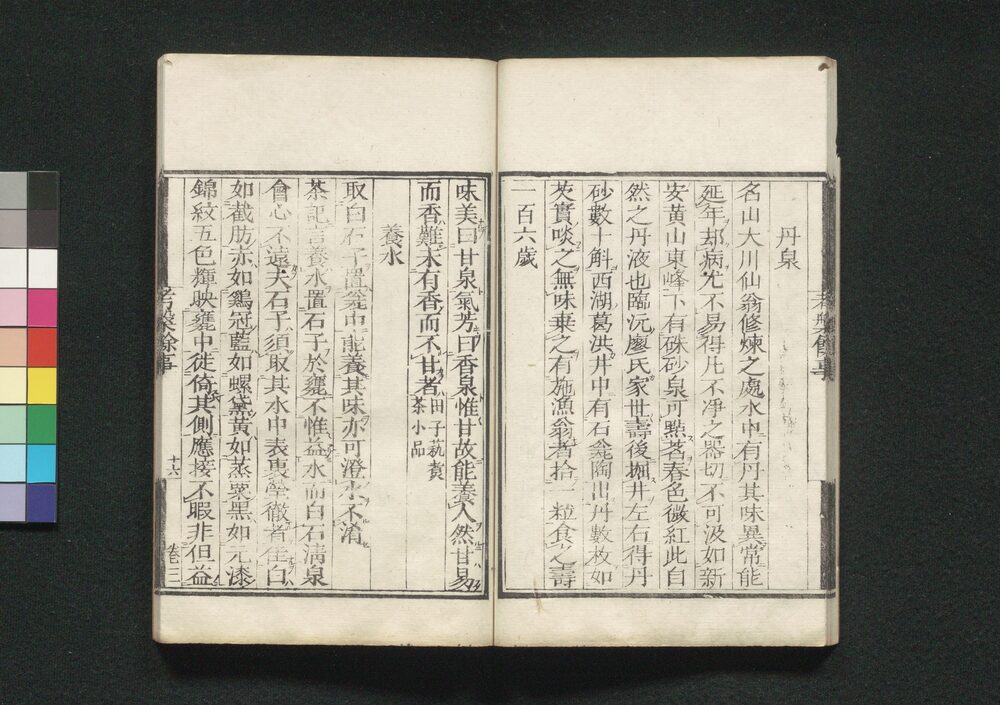 丹泉
名山大川仙翁修煉之處水中有丹其味異常能
延年却病尤不易得凡不淨之器切不可汲如新
安黃山東峰下有硃砂泉可點茗春色微紅此自
然之丹液也臨沅廖氏家世壽後掘井左右得丹
砂數十斛西湖葛洪井中有石甕陶出丹數枚如
芡實啖之無味棄之有施漁翁者拾一粒食之壽
一百六歲
味美曰甘泉氣芳曰香泉惟甘故能養人然甘易
而香難未有香而不甘者田子萟煑
茶小品
養水
取白石子置甕中能養其味亦可澄水不淆
茶記言養水置石子於甕不惟益水而白石清泉
會心不遠夫石子須取其水中表裏瑩徹者佳白
如截肪赤如鷄冠藍如螺黛黃如蒸粟黑如元漆
錦紋五色輝映甕中徙倚其側應接不暇非但益
茗壑餘事
十六
卷三